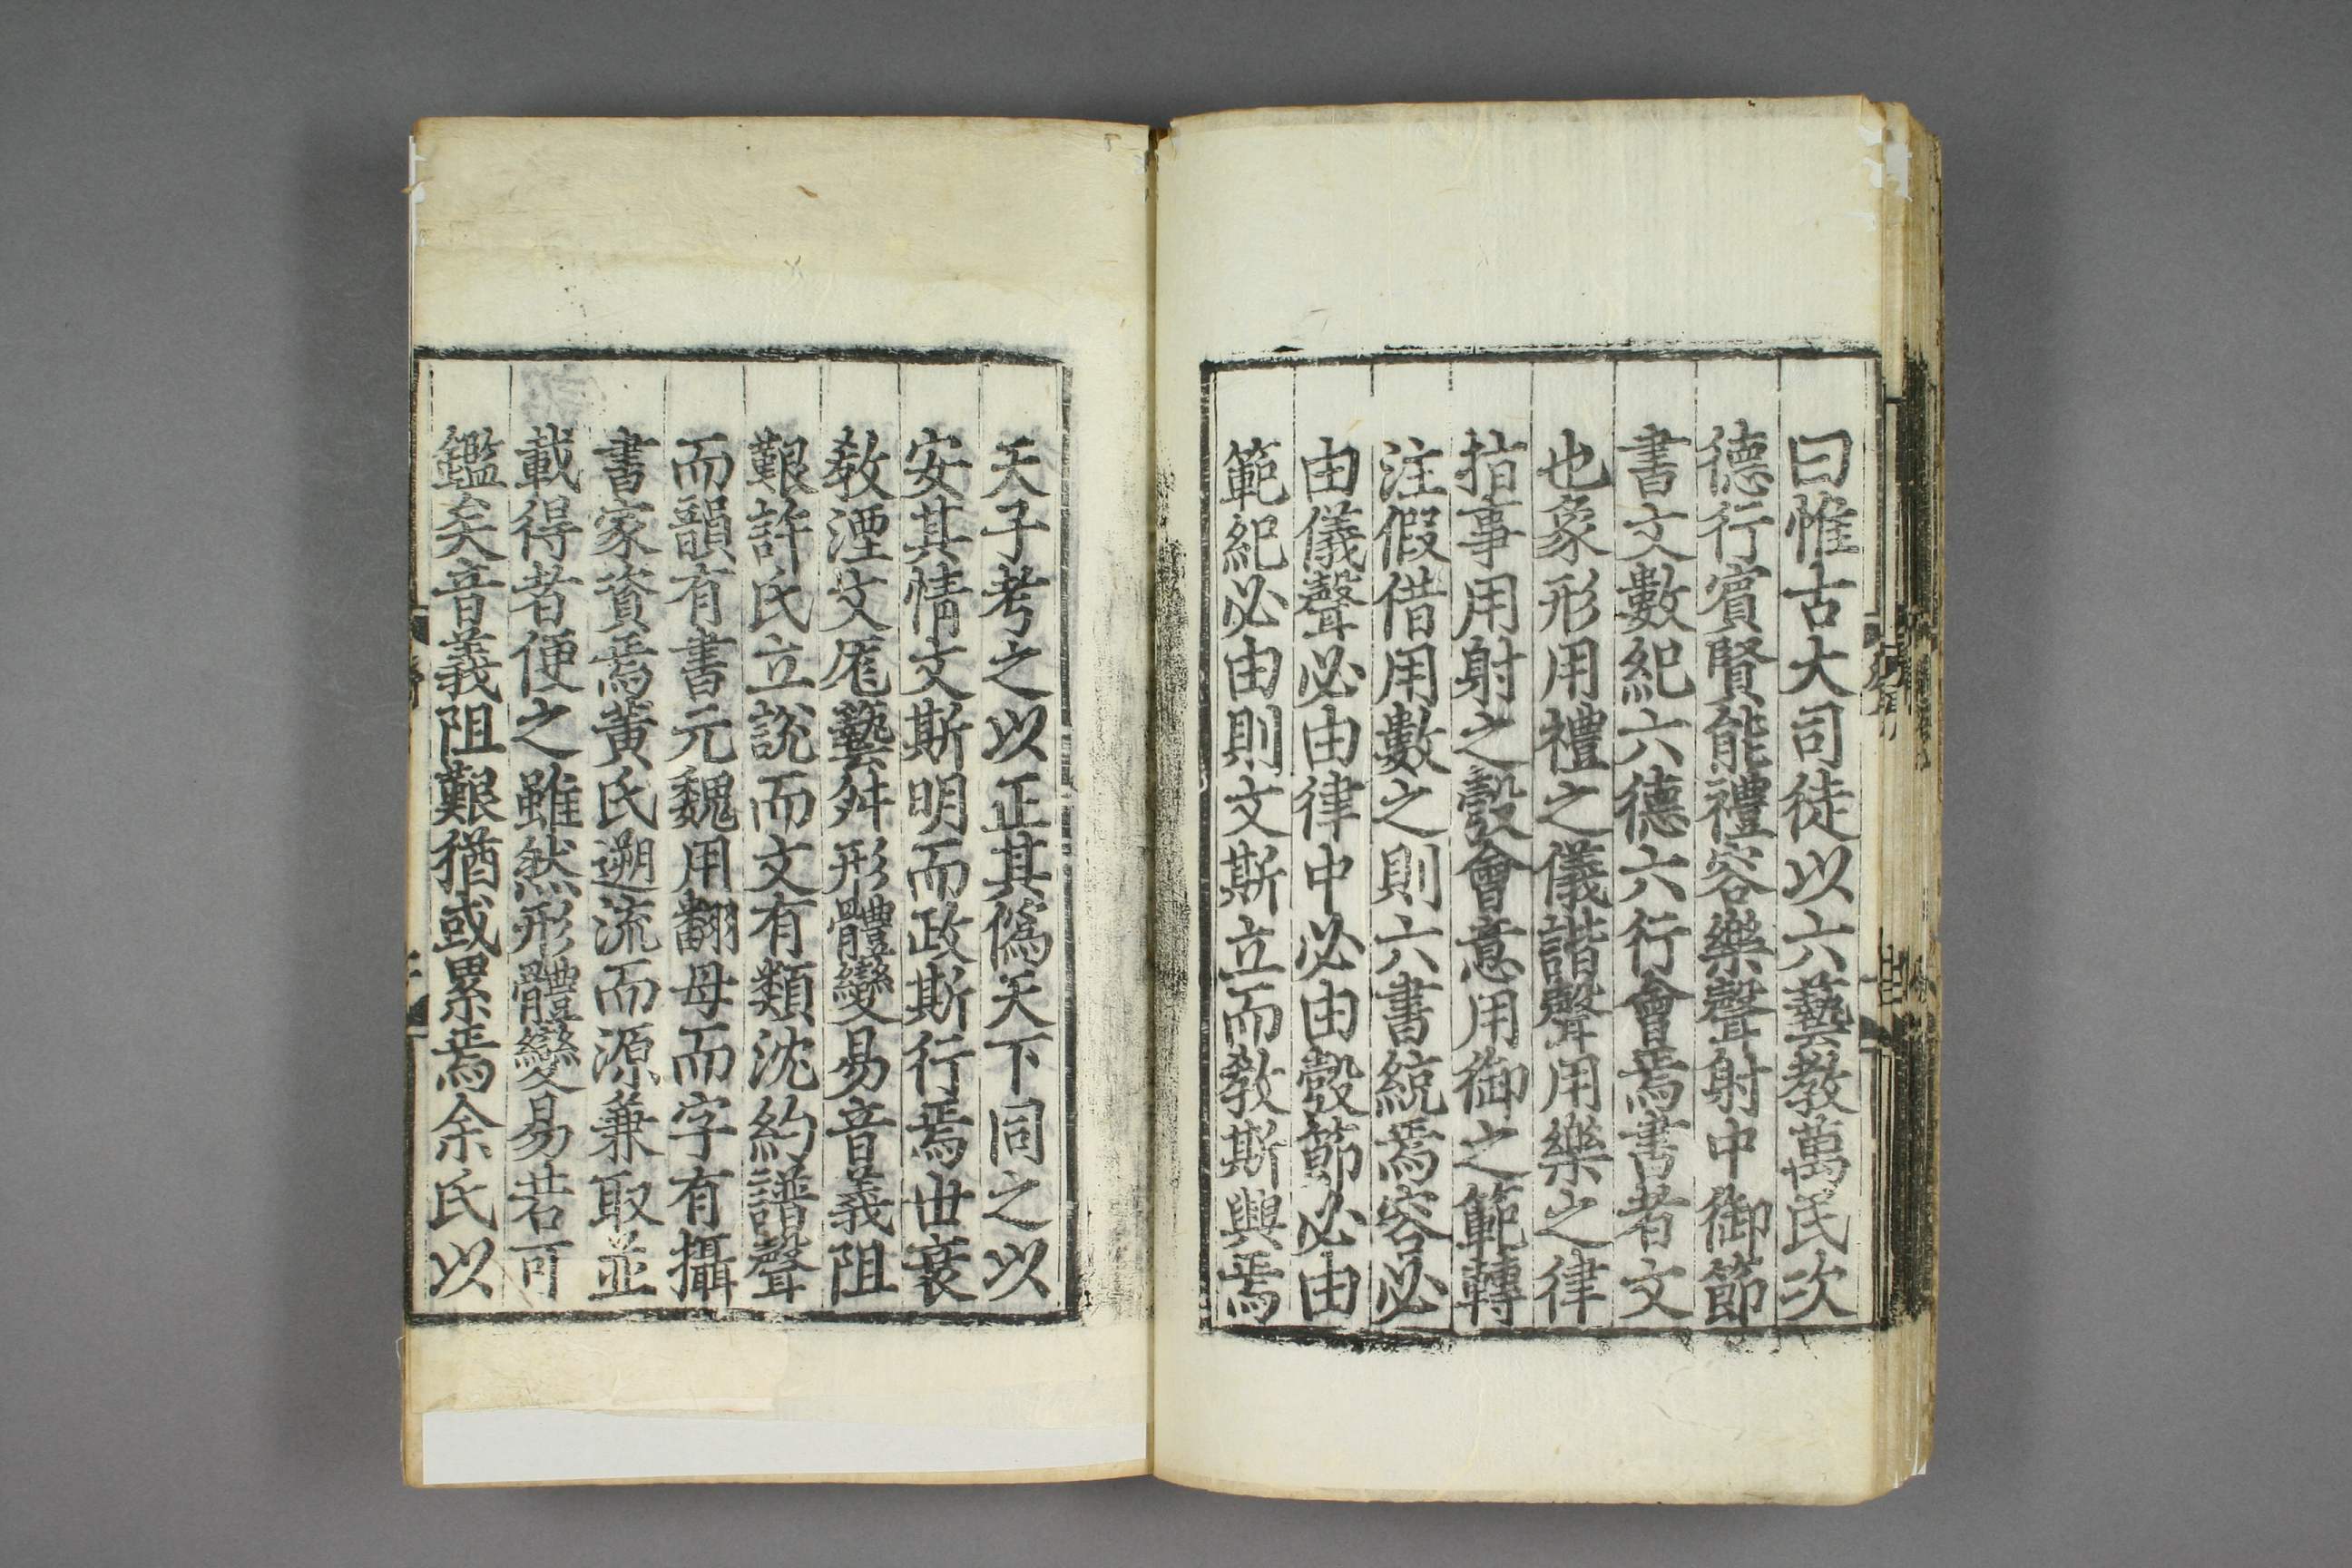 曰惟古大司徒以六藝教萬民次
德行賓賢能禮容樂聲射中御節
書文數紀六德六行會焉書者文
也象形用禮之儀諧聲用樂之律
指事用射之彀會意用御之範轉
注假借用數之則六書統焉容必
由儀聲必由律中必由彀節必由
範紀必由則文斯立而教斯興焉
天子考之以正其僞天下同之以
安其情文斯明而政斯行焉世衰
教湮文厖藝舛形體變易音義阻
艱許氏立說而文有類沈約譜聲
而韻有書元魏用翻母而字有攝
書家資焉黃氏遡流而源兼取並
載得者便之雖然形體變易若可
鑑矣音義阻艱猶或累焉余氏以